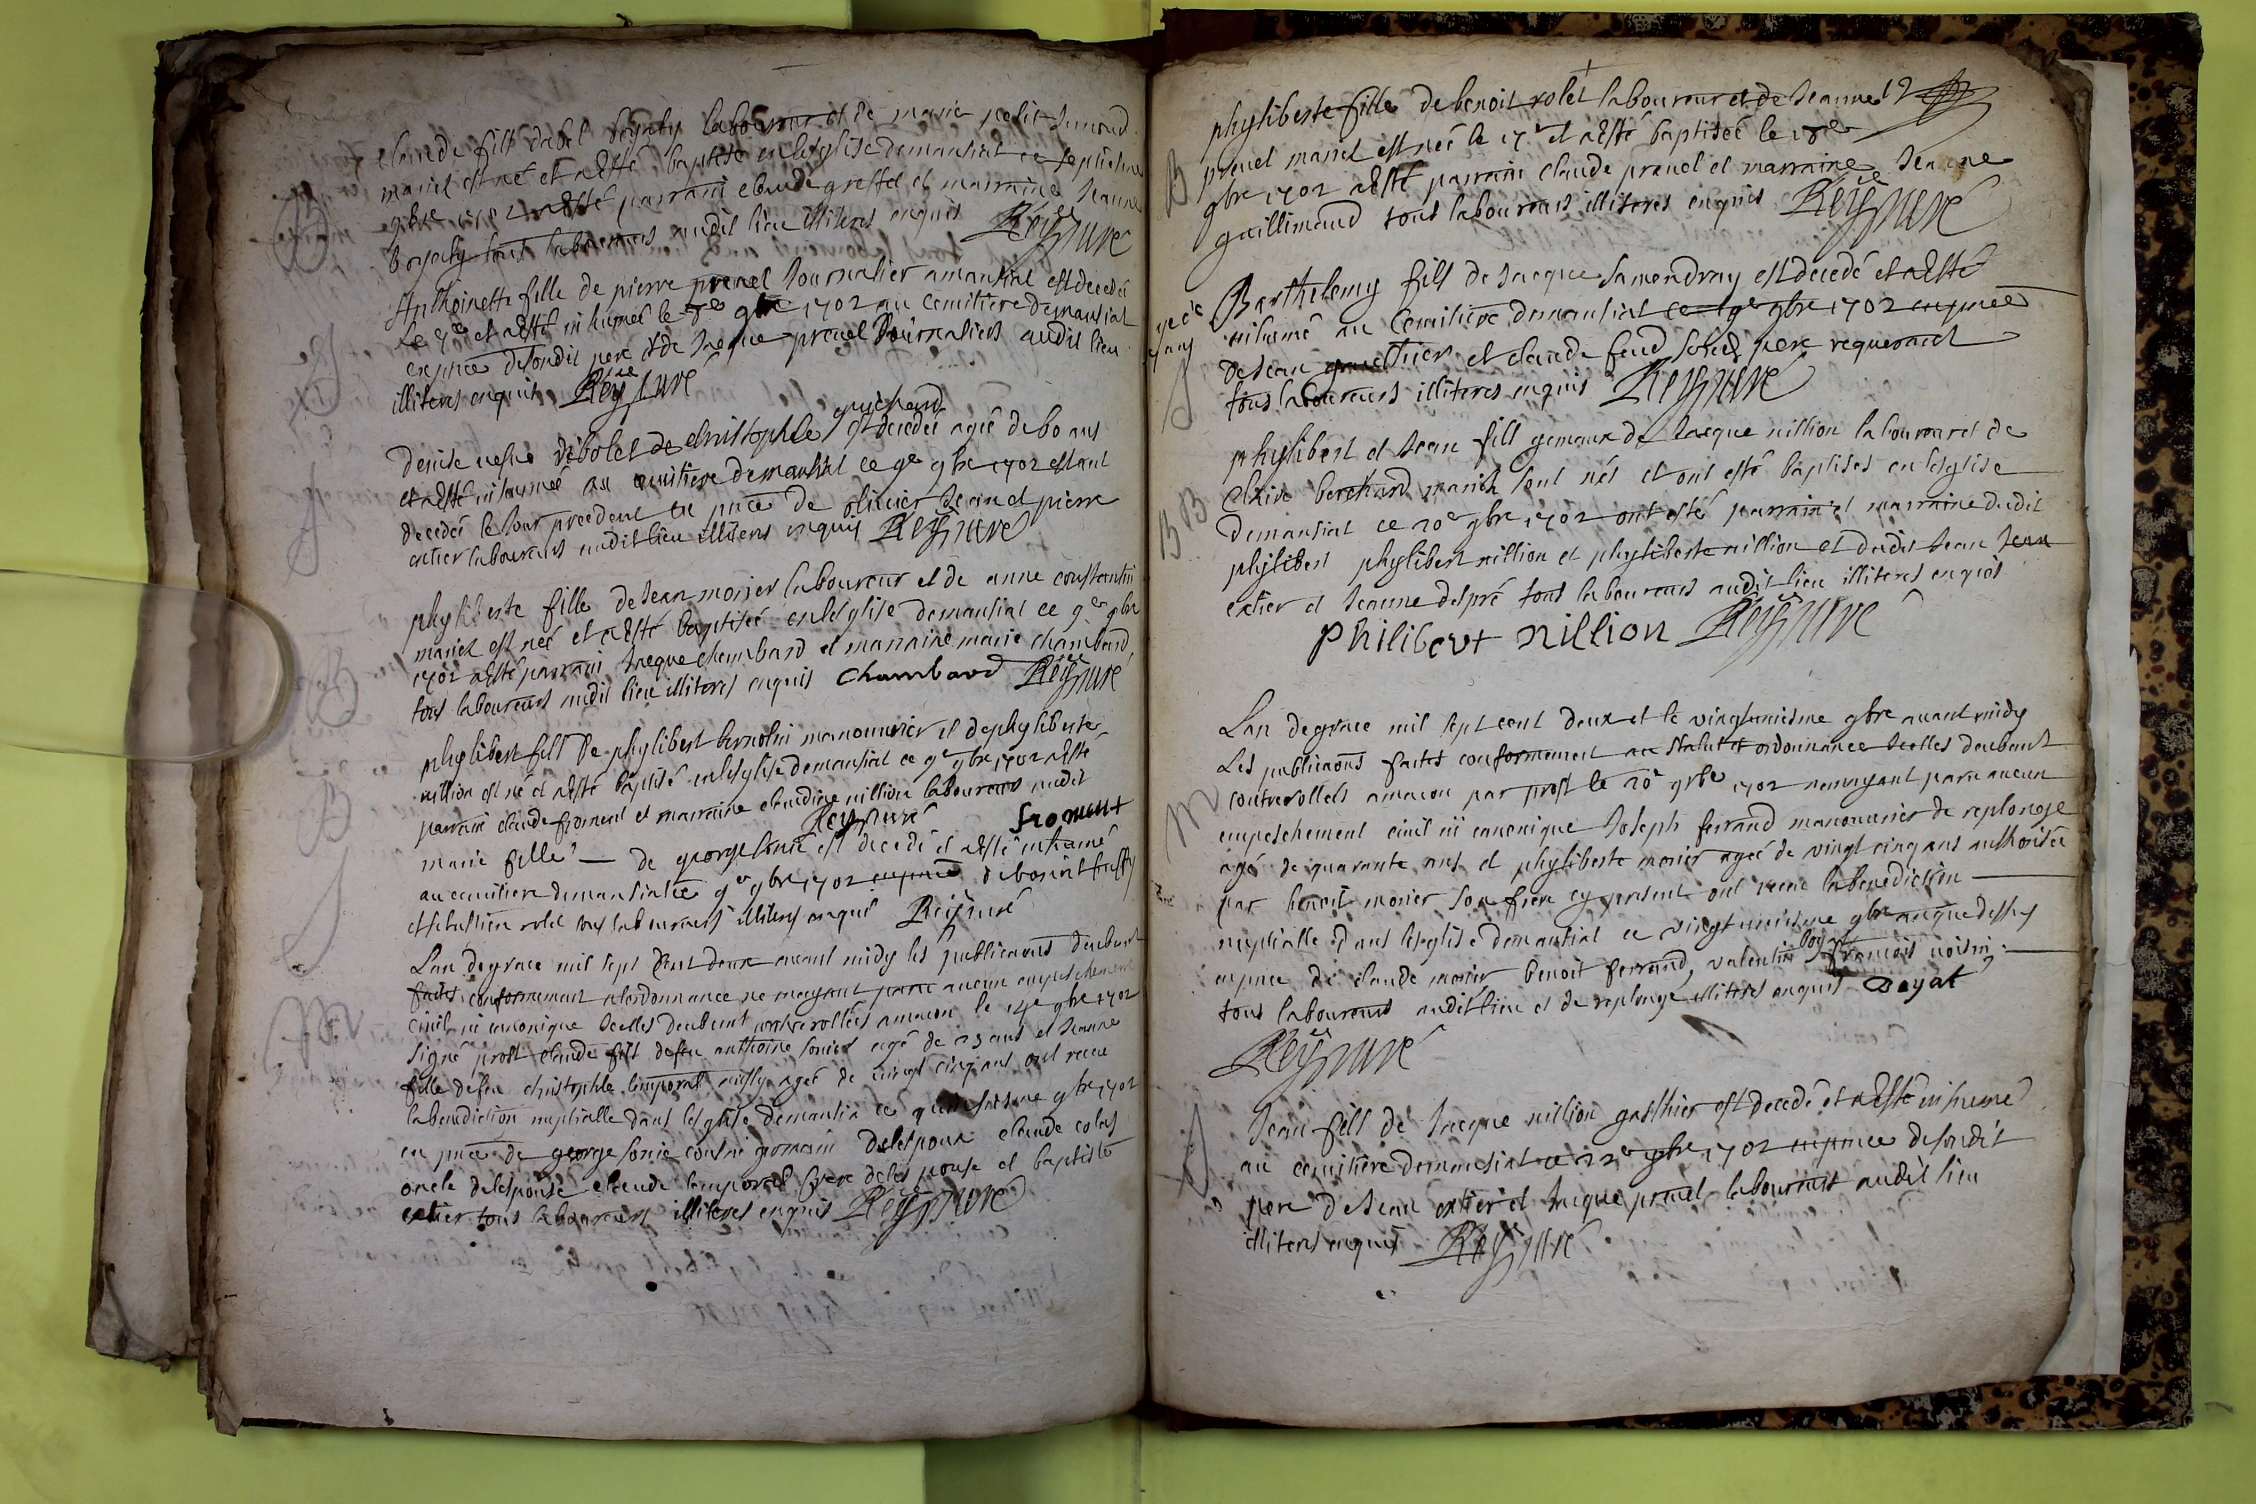 B
claude fils dabel boyaty laboureur et de marie petit Simond
mariel est né et a esté baptisé en lesglise demantiat ce septiesme
9bre 1702 a esté parrain claude greffet et marraine Jeanne
boyaty tous laboureurs audit lieu illiteres enquis Rey curé
Anthoinette fille de pierre prenel Journalier amantiat est decedée
le 7e et a esté inhumée le 8e 9bre 1702 au cemitiere demantiat
en pnce desondit pere et de Jacque prenel Journaliers audit lieu
illiteres enquis Rey curé
guichard
denise vefve de christophle est decedée agée de 60 ans
et a esté inhumée au cemitiere demantiat ce 9e 9bre 1702 estant
decedée le Jour precedent en pnce de olivier Jean et pierre
extier laboureurs audit lieu illiteres enquis Rey curé
B
phyliberte fille de Jean morier laboureur et de anne constantin
mariel est née et a esté baptisée en lesglise demantiat ce 9e 9bre
1702 a esté parrain Jacque chambard et marraine marie chambard
tous laboureurs audit lieu illiteres enquis Chambard Rey curé
B
phylibert fils de phylibert bernolin manouvrier et de phyliberte
nillion est né et a esté baptisé en lesglise demantiat ce 9e 9bre 1702 a esté
parrain claude froment et marraine claudine nillion laboureurs audit
Rey curé froment
marie fille de george sonié est decedé et a esté inhumé
au cemitiere demantiat ce 9e 9bre 1702 en pnce de benoit
et sebastien rolet tous laboureurs illiteres enquis Rey curé
M
Lan de grace mil sept Cent deux avant midy les publicaons deubent
faites conformement a lordonnance ne moyant paru aucun empeschement
civil ni canonique Icelles deubent controrollées amacon le 14e 9bre 1702
signé prost claude fils defeu anthoine sonier agé de 23 ans et Jeanne
fille defeu christophle limporal aussy agée de vingt cinq ans ont receu
la benediction nuptialle dans lesglise demantia ce quinsiesme 9bre 1702
en pnce de george sonié cousin germain delespoux claude colas
oncle delespouse claude lamporal frere delespouse et baptiste
extier tous laboureurs illiteres enquis Rey curé
B
phyliberte fille de benoit rolet laboureur et de Jeanne
prenel mariel est née le 17e et a esté baptisée le 18e
9bre 1702 a esté parrain claude prenel et marraine Jeanne
gaillimaud tous laboureurs illiteres enquis Rey curé
Barthelemy fils de Jacque Samendray est decedé et a esté
inhumé au Cemitiere demantiat ce 19e 9bre 1702 en pnce
de Jean extier et claude feud sondit pere requerant
tous laboureurs illiteres enquis Rey curé
B B
phylibert et Jean fils gemaux de Jacque nillion laboureur et de
claire berchard mariel sont nés et ont esté baptisés en lesglise
demantiat ce 20e 9bre 1702 ont esté parrain et marraine dudit
phylibert phylibert nillion et phyliberte nillion et dudit Jean Jean
extier et Jeanne despré tous laboureurs audit lieu illiteres enquis
Philibert Nillion Rey curé
M
Lan degrace mil sept cent deux et le vingtuniesme 9bre avant midy
Les publicaons faites conformement au statut et ordonnance Icelles deubent
controrollées amacon par prost le 20e 9bre 1702 nemoyant paru aucun
empeschement civil ni canonique Joseph ferrand manouvrier de replonge
agé de quarante ans et phyliberte morier agée de vingt cinq ans authorisée
par benoit morier son frere cy present ont receu la benediction
nuptialle dans lesglise demantiat ce vingtuniesme 9bre an que dessus
en pnce de claude morier benoit ferrand, valentin boyat francois voisin
tous laboureurs audit lieu et de replonge illiteres enquis Boyat
Rey curé
Jean fils de Jacque nillion gasthier est decedé et a esté inhumé
au cemitiere demantiat ce 22e 9bre 1702 en pnce desondit
pere de Jean extier et Jacque prenel laboureurs audit lieu
illiteres enquis Rey curé